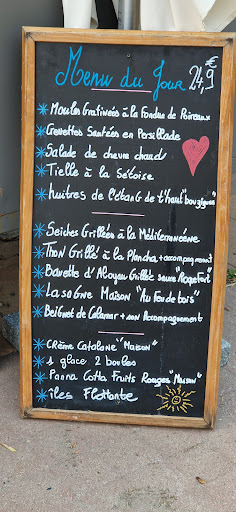 Menu du Jour 24,9 €
Moules Gratinées à la Fondue de Poireaux
Crevettes Sautées en Persillade
Salade de chèvre chaud
Tielle à la Sétoise
huitres de l'étang de thau "bouzigues"
Seiches Grillées à la Méditerranéenne
Thon Grillé à la Plancha + accompagnement
Bavette d'Aloyau Grillée sauce "Roquefort"
Lasagne Maison "Au feu de bois"
Beignet de Calamar + son Accompagnement
Crème Catalane "Maison"
1 glace 2 boules
Panna Cotta Fruits Rouges "Maison"
îles Flottante